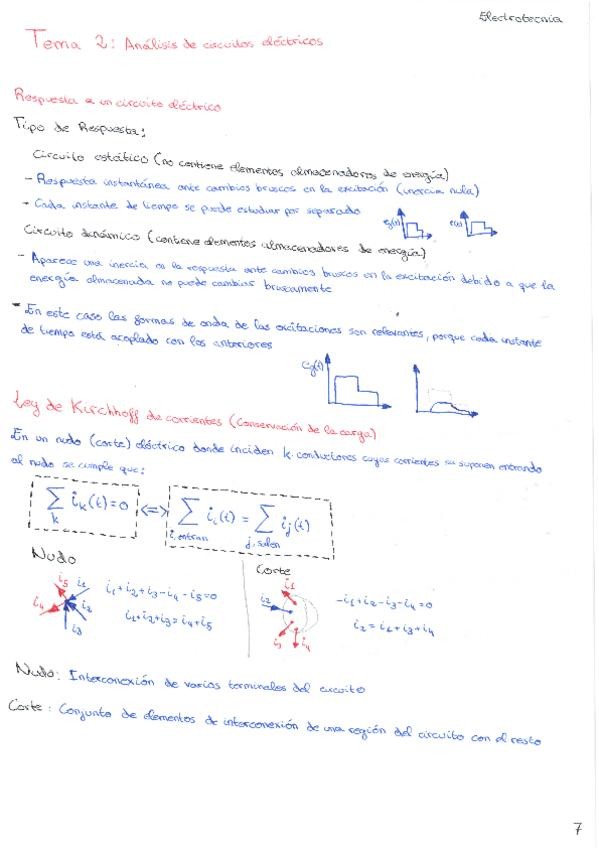 Electrotecnia
Tema 2: Análisis de circuitos eléctricos
Respuesta a un circuito eléctrico
Tipo de Respuesta:
Circuito estático (no contiene elementos almacenadores de energía)
- Respuesta instantánea ante cambios bruscos en la excitación (inercia nula)
- Cada instante de tiempo se puede estudiar por separado
eg(t) e(t)
Circuito dinámico (contiene elementos almacenadores de energía)
- Aparece una inercia en la respuesta ante cambios bruscos en la excitación debido a que la
energía almacenada no puede cambiar bruscamente
- En este caso las formas de onda de las excitaciones son relevantes, porque cada instante
de tiempo está acoplado con los anteriores
eg(t)
Ley de Kirchhoff de corrientes (Conservación de la carga)
En un nudo (corte) eléctrico donde inciden k conductores cuyas corrientes se suponen entrando
al nudo se cumple que:
∑ iₖ(t)=0 <=> ∑ iᵢ(t) = ∑ iⱼ(t)
k i, entran j, salen
Nudo
Corte
i5 i1 i4 i2 i3
i1+i2+i3-i4-i5=0
i1+i2+i3=i4+i5
i1 i2 i3 i4
-i1+i2-i3-i4=0
i2=i1+i3+i4
Nudo: Interconexión de varios terminales del circuito
Corte: Conjunto de elementos de interconexión de una región del circuito con el resto
7